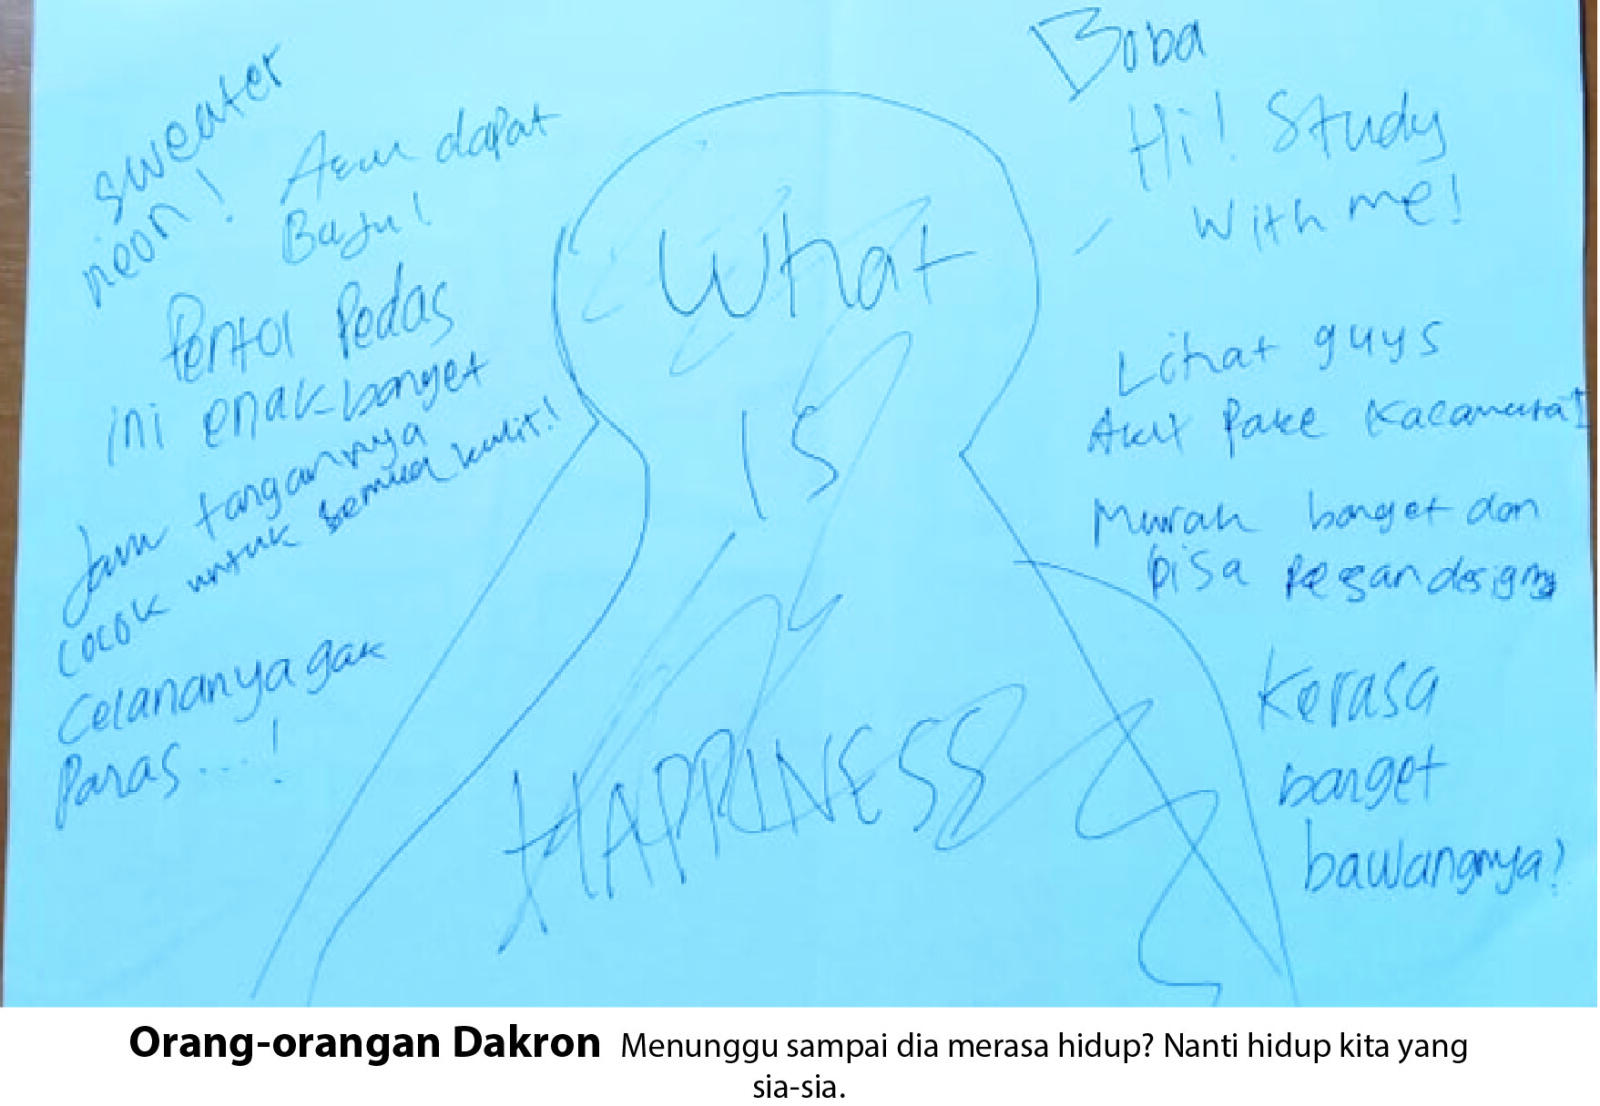 sweater
neon!
Akuu dapat
Baju!
Pentol Pedas
ini enak banget
Jam tangannya
cocok untuk semua kulit!
Celananya gak
Panas...!
What
IS
HAPPINESS
Boba
Hi! Study
With me!
Lihat guys
Aku pake kacamata!
Murah banget dan
bisa pesan designny
Kerasa
banget
bawangnya?
Orang-orangan Dakron Menunggu sampai dia merasa hidup? Nanti hidup kita yang
sia-sia.